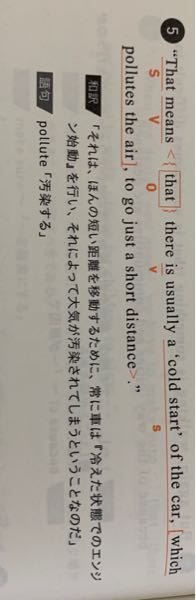 5 "That means <{that} there is usually a 'cold start' of the car, [which
S V O v s
pollutes the air], to go just a short distance>."
和訳 「それは、ほんの短い距離を移動するために、常に車は『冷えた状態でのエンジ
ン始動』を行い、それによって大気が汚染されてしまうということなのだ」
語句 pollute「汚染する」